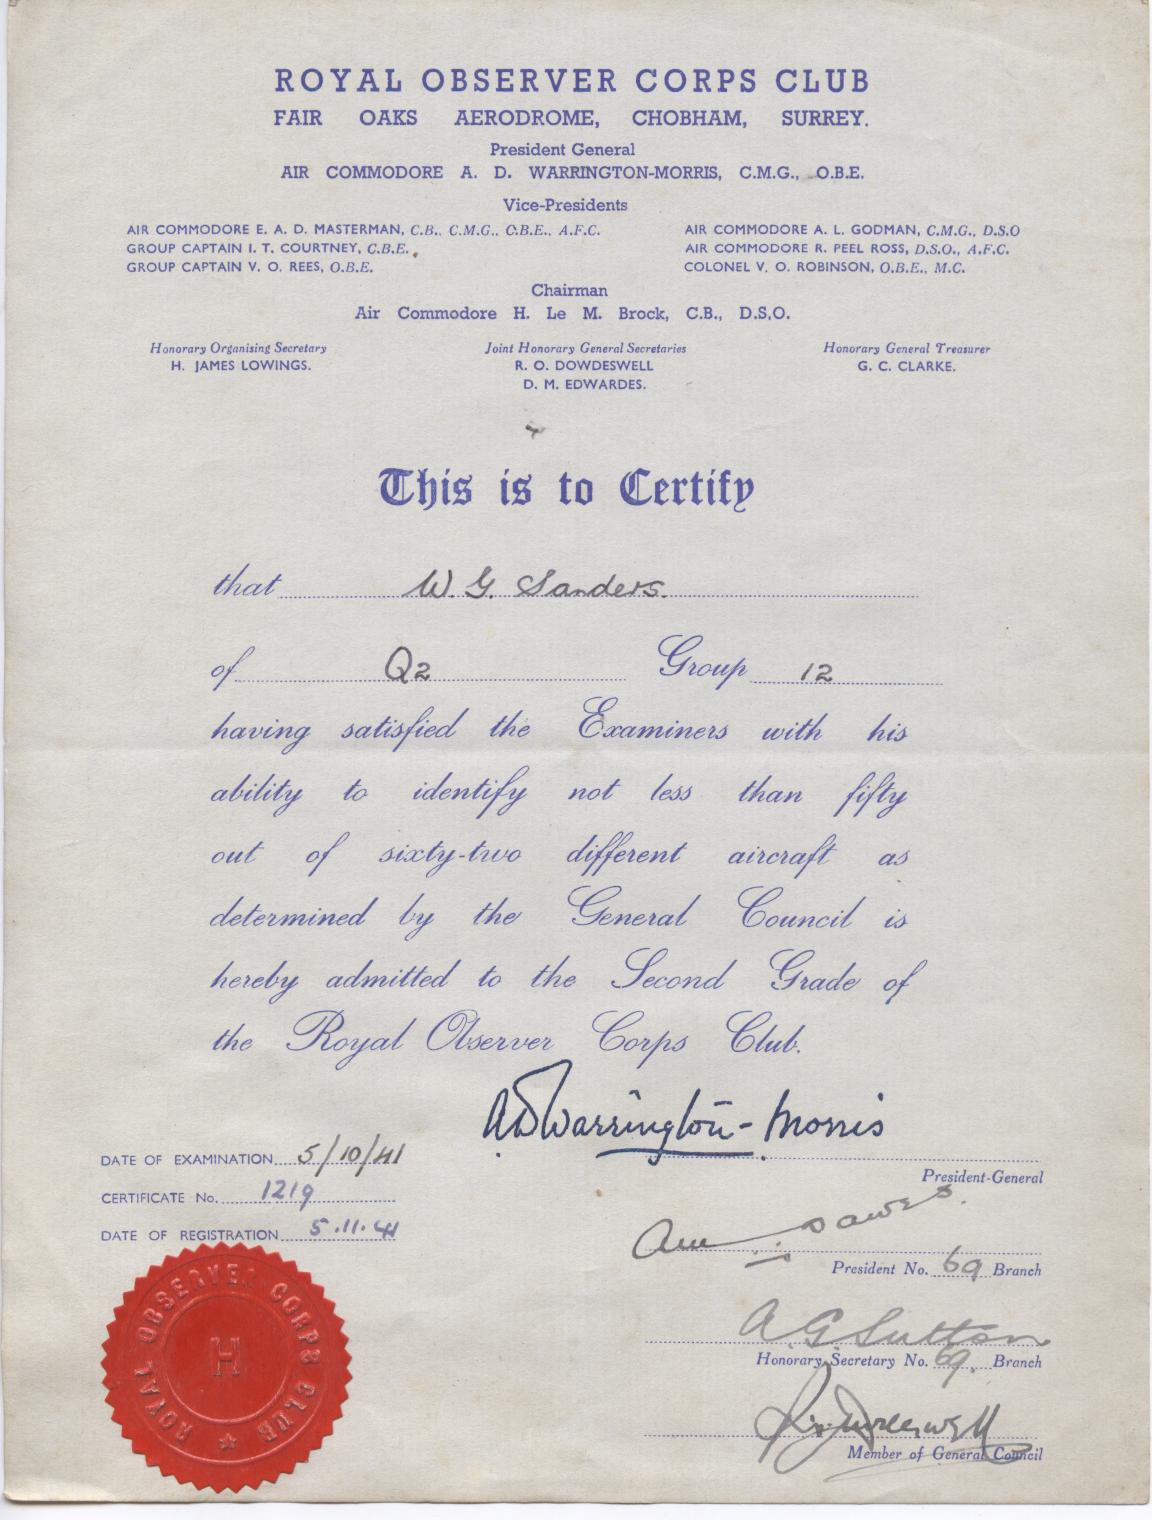 ROYAL OBSERVER CORPS CLUB
FAIR OAKS AERODROME, CHOBHAM, SURREY.
President General
AIR COMMODORE A. D. WARRINGTON-MORRIS, C.M.G., O.B.E.
Vice-Presidents
AIR COMMODORE E. A. D. MASTERMAN, C.B., C.M.G., C.B.E., A.F.C.
GROUP CAPTAIN I. T. COURTNEY, C.B.E.
GROUP CAPTAIN V. O. REES, O.B.E.
AIR COMMODORE A. L. GODMAN, C.M.G., D.S.O
AIR COMMODORE R. PEEL ROSS, D.S.O., A.F.C.
COLONEL V. O. ROBINSON, O.B.E., M.C.
Chairman
Air Commodore H. Le M. Brock, C.B., D.S.O.
Honorary Organising Secretary
H. JAMES LOWINGS.
Joint Honorary General Secretaries
R. O. DOWDESWELL
D. M. EDWARDES.
Honorary General Treasurer
G. C. CLARKE.
This is to Certify
that W. G. Sanders.
of Q2 Group 12
having satisfied the Examiners with his
ability to identify not less than fifty
out of sixty-two different aircraft as
determined by the General Council is
hereby admitted to the Second Grade of
the Royal Observer Corps Club.
A D Warrington-Morris
President-General
DATE OF EXAMINATION 5/10/41
CERTIFICATE No. 1219
DATE OF REGISTRATION 5.11.41
Dawes.
President No. 69 Branch
A G Sutton
Honorary Secretary No. 69. Branch
Member of General Council
ROYAL OBSERVER CORPS CLUB
H